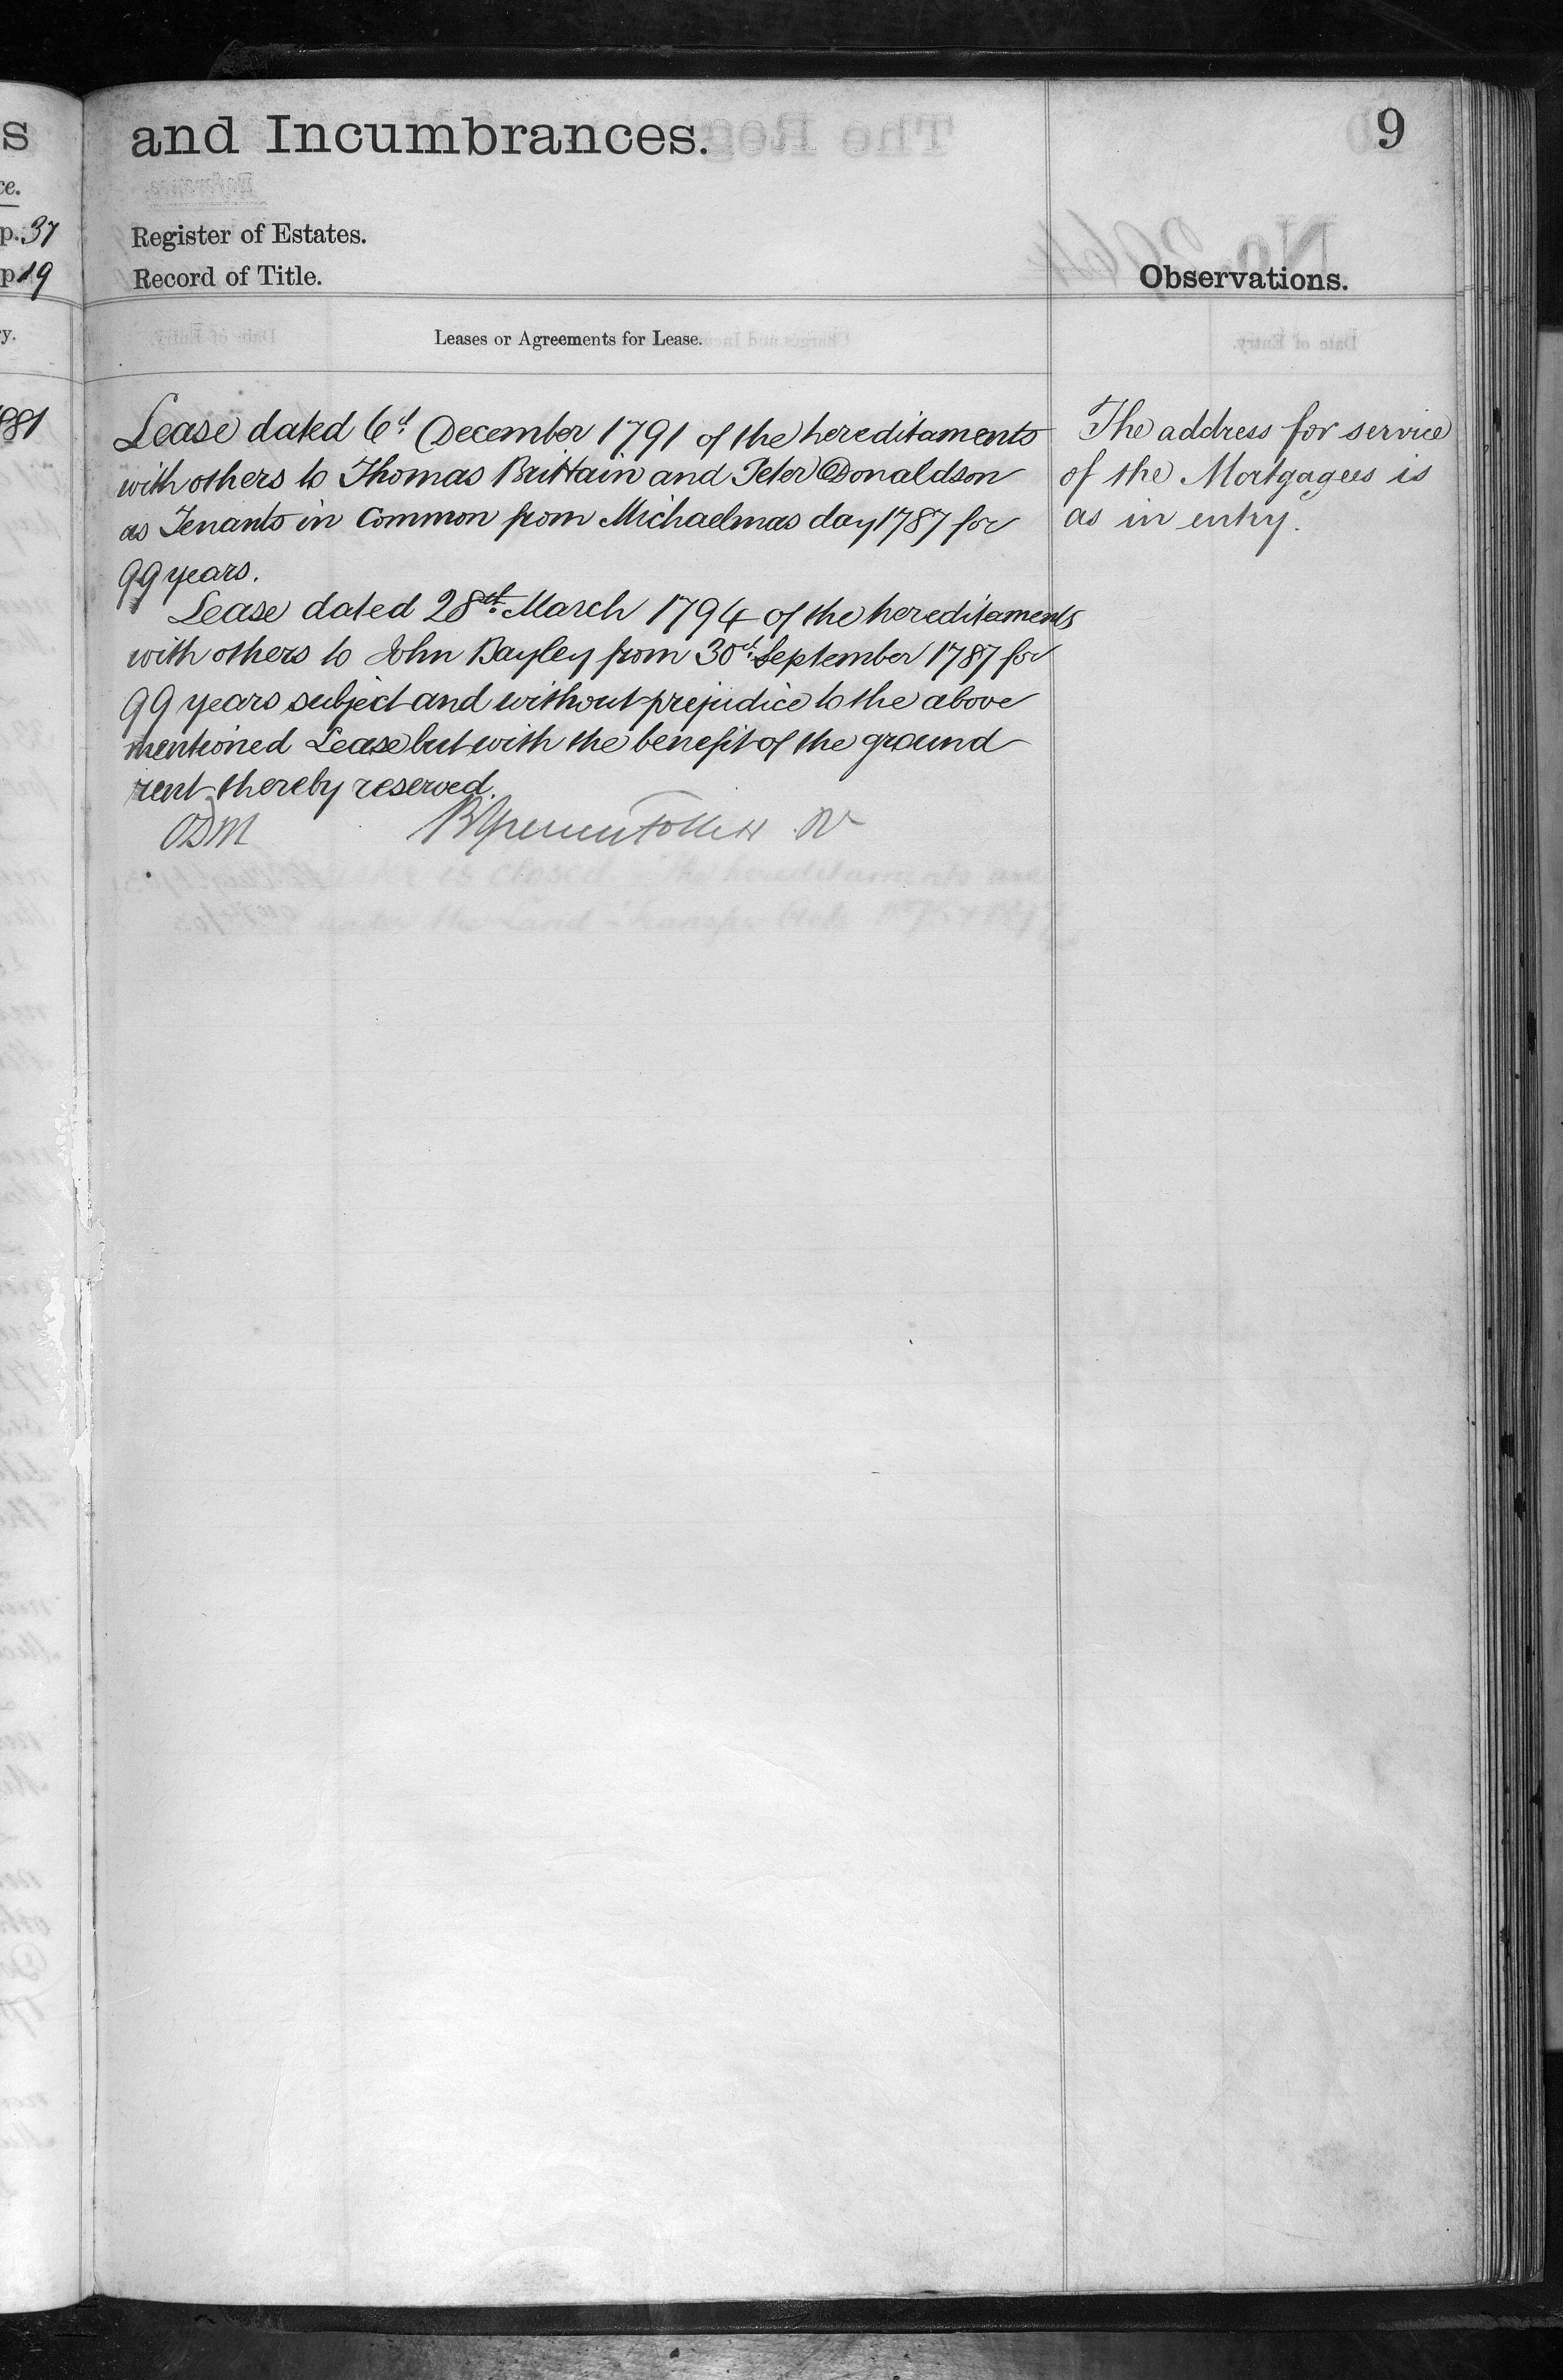 and Incumbrances.
9
Register of Estates.
Record of Title.
Observations.
Leases or Agreements for Lease.
Lease dated 6th December 1791 of the hereditaments
with others to Thomas Brittain and Peter Donaldson
as Tenants in Common from Michaelmas day 1787 for
99 years.
Lease dated 28th March 1794 of the hereditaments
with others to John Bayley from 30th September 1787 for
99 years subject and without prejudice to the above
mentioned Lease but with the benefit of the ground
rent thereby reserved.
The address for service
of the Mortgagees is
as in entry.
p. 37
p 19
881